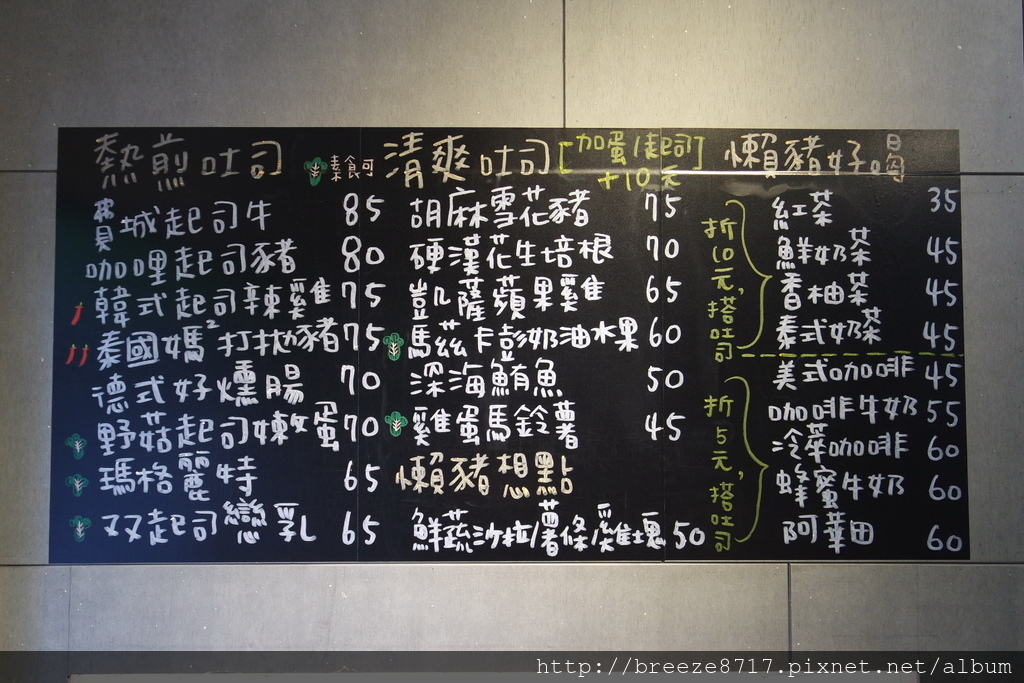 熱煎吐司 素食可
費城起司牛 85
咖哩起司豬 80
韓式起司辣雞 75
泰國媽²打拋豬 75
德式好燻腸 70
野菇起司嫩蛋 70
瑪格麗特 65
双起司戀乳 65
清爽吐司 [加蛋/起司]
+10元
胡麻雪花豬 75
硬漢花生培根 70
凱薩蘋果雞 65
馬茲卡彭奶油水果 60
深海鮪魚 50
雞蛋馬鈴薯 45
懶豬想點
鮮蔬沙拉/薯條/雞塊 50
懶豬好喝
紅茶 35
鮮奶茶 45
香柚茶 45
泰式奶茶 45
折10元,搭吐司
美式咖啡 45
咖啡牛奶 55
冷萃咖啡 60
蜂蜜牛奶 60
阿華田 60
折5元,搭吐司
http://breeze8717.pixnet.net/album